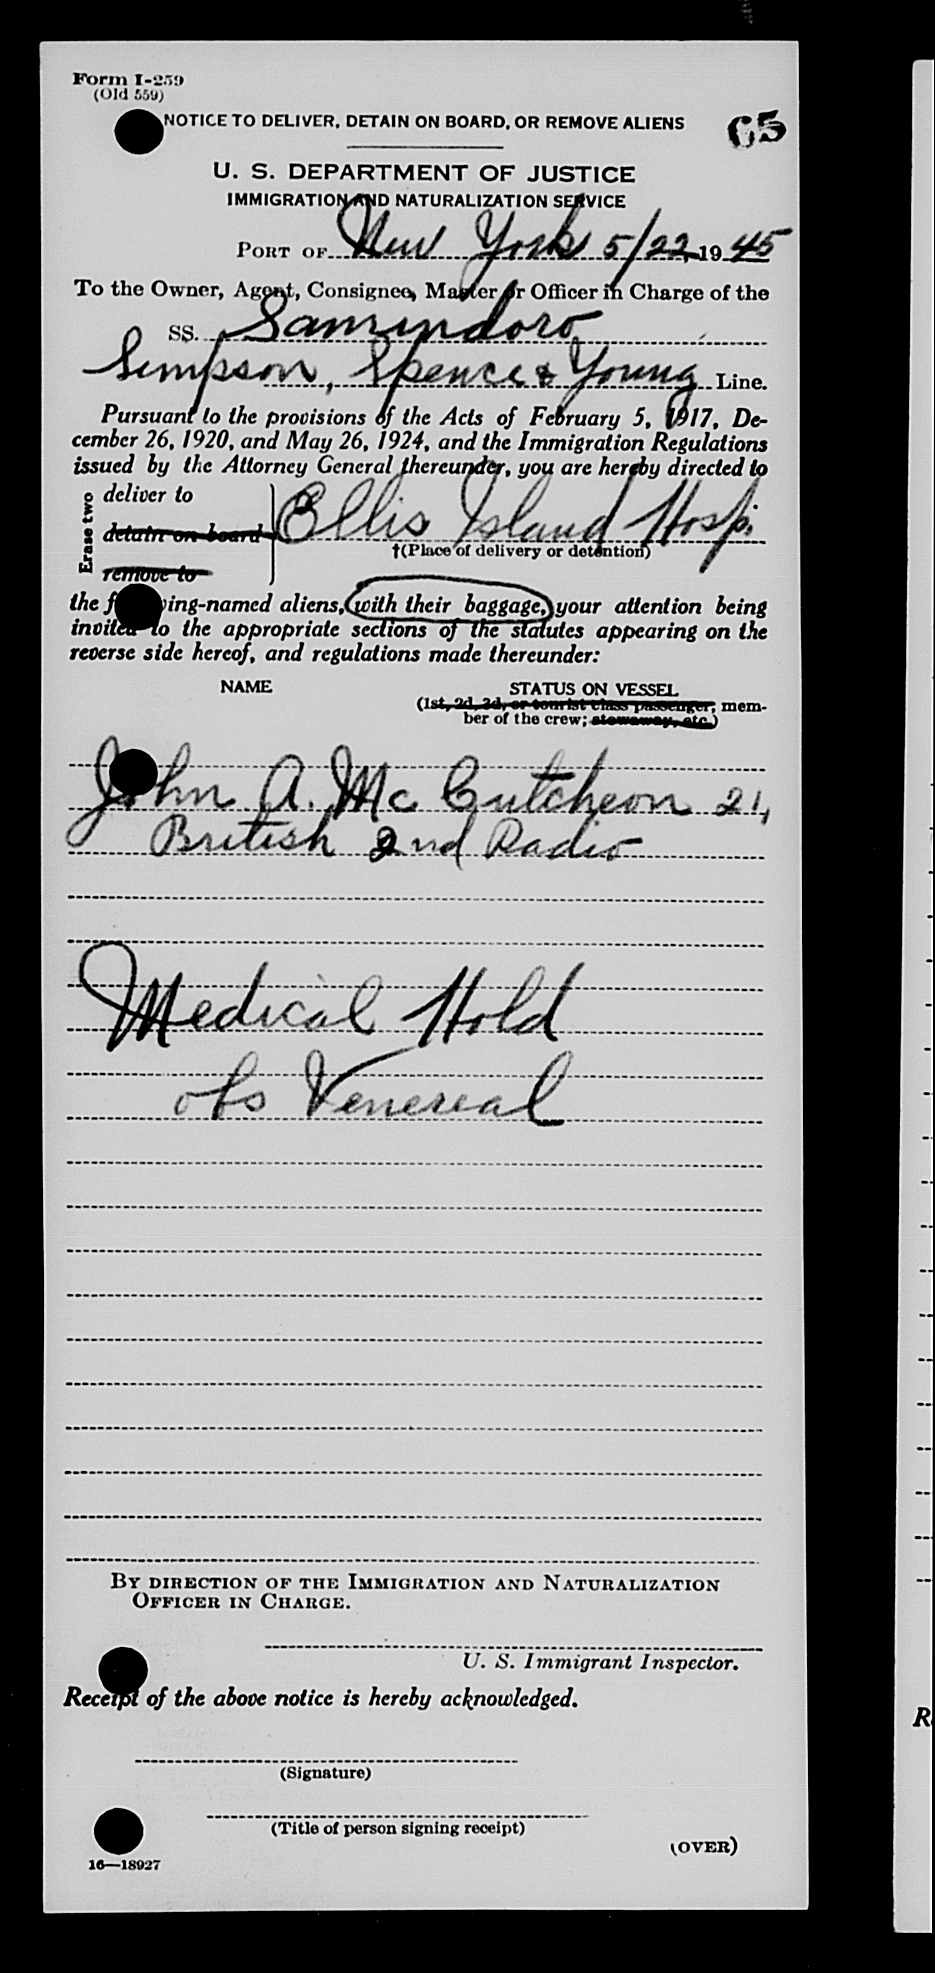 Form I-259
(Old 559)
NOTICE TO DELIVER, DETAIN ON BOARD, OR REMOVE ALIENS
65
U. S. DEPARTMENT OF JUSTICE
IMMIGRATION AND NATURALIZATION SERVICE
PORT OF New York 5/22, 1945
To the Owner, Agent, Consignee, Master or Officer in Charge of the
SS. Samindoro
Simpson, Spence & Young Line.
Pursuant to the provisions of the Acts of February 5, 1917, De-
cember 26, 1920, and May 26, 1924, and the Immigration Regulations
issued by the Attorney General thereunder, you are hereby directed to
Erase two
deliver to
detain on board
remove to
Ellis Island Hosp.
†(Place of delivery or detention)
the following-named aliens, with their baggage, your attention being
invited to the appropriate sections of the statutes appearing on the
reverse side hereof, and regulations made thereunder:
NAME STATUS ON VESSEL
(1st, 2d, 3d, or tourist class passenger; mem-
ber of the crew; stowaway, etc.)
John A. McCutcheon 21,
British 2nd Radio
Medical Hold
obs Venereal
BY DIRECTION OF THE IMMIGRATION AND NATURALIZATION
OFFICER IN CHARGE.
U. S. Immigrant Inspector.
Receipt of the above notice is hereby acknowledged.
(Signature)
(Title of person signing receipt)
(OVER)
16—18927
R